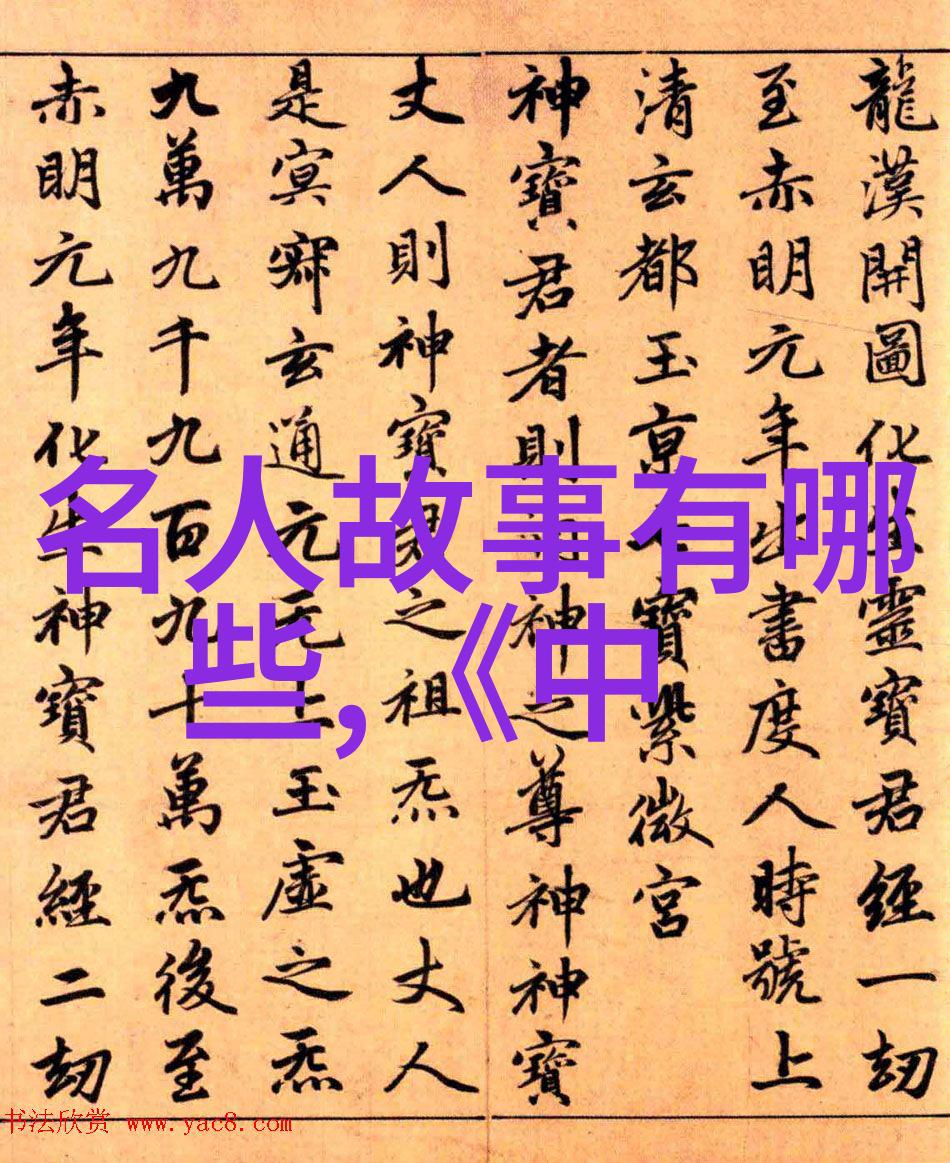 龍漢開圖化生靈寶君經一劫
至赤明元年出書度人時號上
清玄都玉京七寶紫微宮
神寶君者則洞神之尊神神寶
丈人則神寶君之祖炁也丈人
是冥寂玄通元无上玉虛之炁
九萬九千九百九十萬炁後至
赤明元年化生神寶君經二劫
名人故事有哪
些,《中
书法欣赏 www.yac8.com